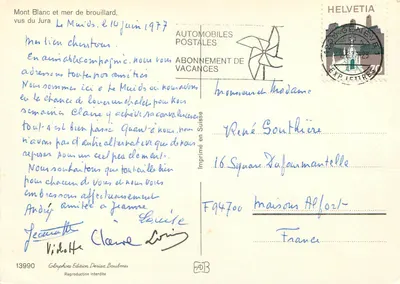 Mont Blanc et mer de brouillard,
vus du Jura
Le Muids, le 14 juin 1977
AUTOMOBILES
POSTALES
ABONNEMENT DE
VACANCES
HELVETIA
En aimable compagnie, nous vous
adressons toutes nos amitiés
Nous sommes ici à Le Muids où nous avons
eu la chance de trouver un chalet pour trois
semaines. Claire y achève sa convalescence
tout s'est bien passé. Quant à nous nous
n'avons pas d'autre alternative que de nous
reposer sous un ciel peu clément.
Nous souhaitons que tout aille bien
pour chacun de vous et nous vous
embrassons affectueusement
André amitié à Jeanne
Louise
Violette Claire
Monsieur et Madame
René Gouthière
16 Square Dufourmantelle
F 94700 Maisons Alfort
France
Imprimé en Suisse
13990
Reproduction interdite